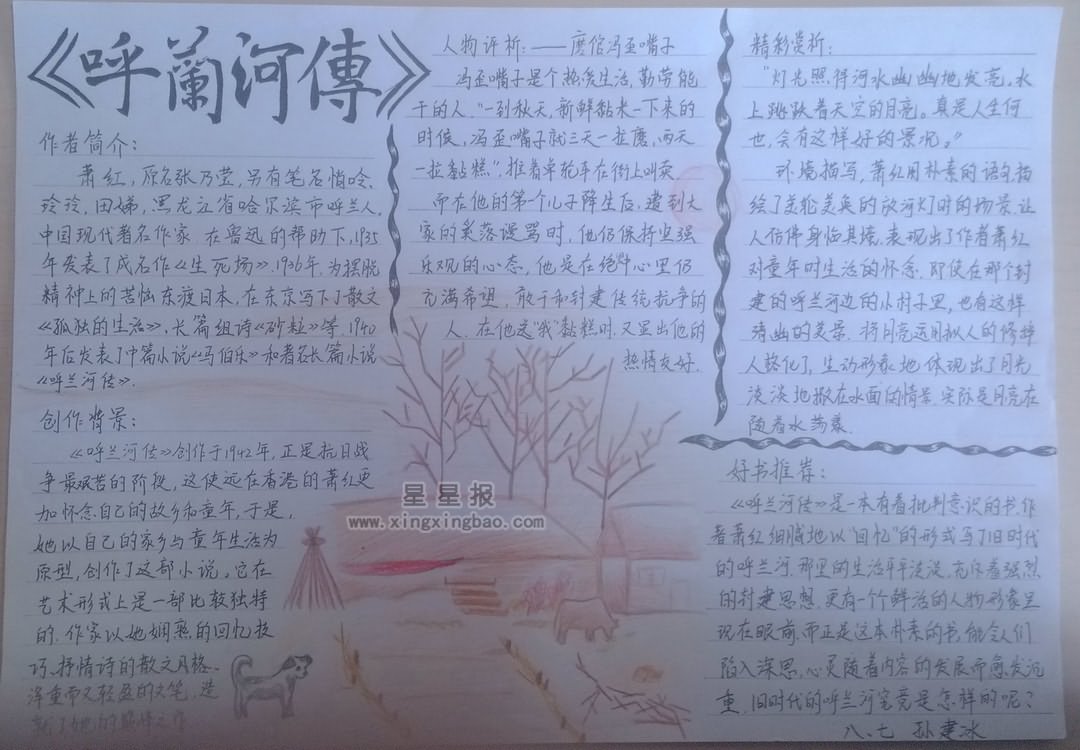 《呼蘭河傳》
作者简介：
萧红，原名张乃莹，另有笔名悄吟、
玲玲，田娣，黑龙江省哈尔滨市呼兰人，
中国现代著名作家 在鲁迅的帮助下，1935
年发表了成名作《生死场》.1936年，为摆脱
精神上的苦恼东渡日本，在东京写下了散文
《孤独的生活》，长篇组诗《砂粒》等.1940
年后发表了中篇小说《马伯乐》和著名长篇小说
《呼兰河传》.
创作背景：
《呼兰河传》创作于1942年，正是抗日战
争最艰苦的阶段，这使远在香港的萧红更
加怀念自己的故乡和童年，于是，
她以自己的家乡与童年生活为
原型，创作了这部小说。它在
艺术形式上是一部比较独特
的.作家以她娴熟的回忆技
巧、抒情诗的散文风格、
浑重而又轻盈的文笔，造
就了她的巅峰之作
人物评析：——磨倌冯歪嘴子
冯歪嘴子是个热爱生活，勤劳能
干的人."一到秋天，新鲜黏米一下来的
时候，冯歪嘴子就三天一拉磨，两天
一拉黏糕"，推着单轮车在街上叫卖.
而在他的第一个儿子降生后，遭到大
家的笑落谩骂时，他仍保持坚强
乐观的心态，他是在绝中心里仍
充满希望，敢于和封建传统抗争的
人.在他送"我"黏糕时.又显出他的
热情友好.
精彩赏析：
"灯光照得河水幽幽地发亮。水
上跳跃着天空的月亮。真是人生何
世，会有这样好的景况。"
环境描写，萧红用朴素的语句描
绘了美轮美奂的放河灯时的场景.让
人仿佛身临其境.表现出了作者萧红
对童年时生活的怀念.即使在那个封
建的呼兰河边的小村子里，也有这样
清幽的美景.将月亮运用拟人的修辞
人格化了，生动形象地体现出了月光
淡淡地撒在水面的情景.实际是月亮在
随着水荡漾.
好书推荐：
《呼兰河传》是一本有着批判意识的书.作
者萧红细腻地以"回忆"的形式写了旧时代
的呼兰河.那里的生活平平淡淡，充斥着强烈
的封建思想.更有一个个鲜活的人物形象呈
现在眼前.而正是这本朴素的书，能令人们
陷入深思，心灵随着内容的发展而愈发沉
重.旧时代的呼兰河究竟是怎样的呢？
八、七 孙建冰
星星报
www.xingxingbao.com